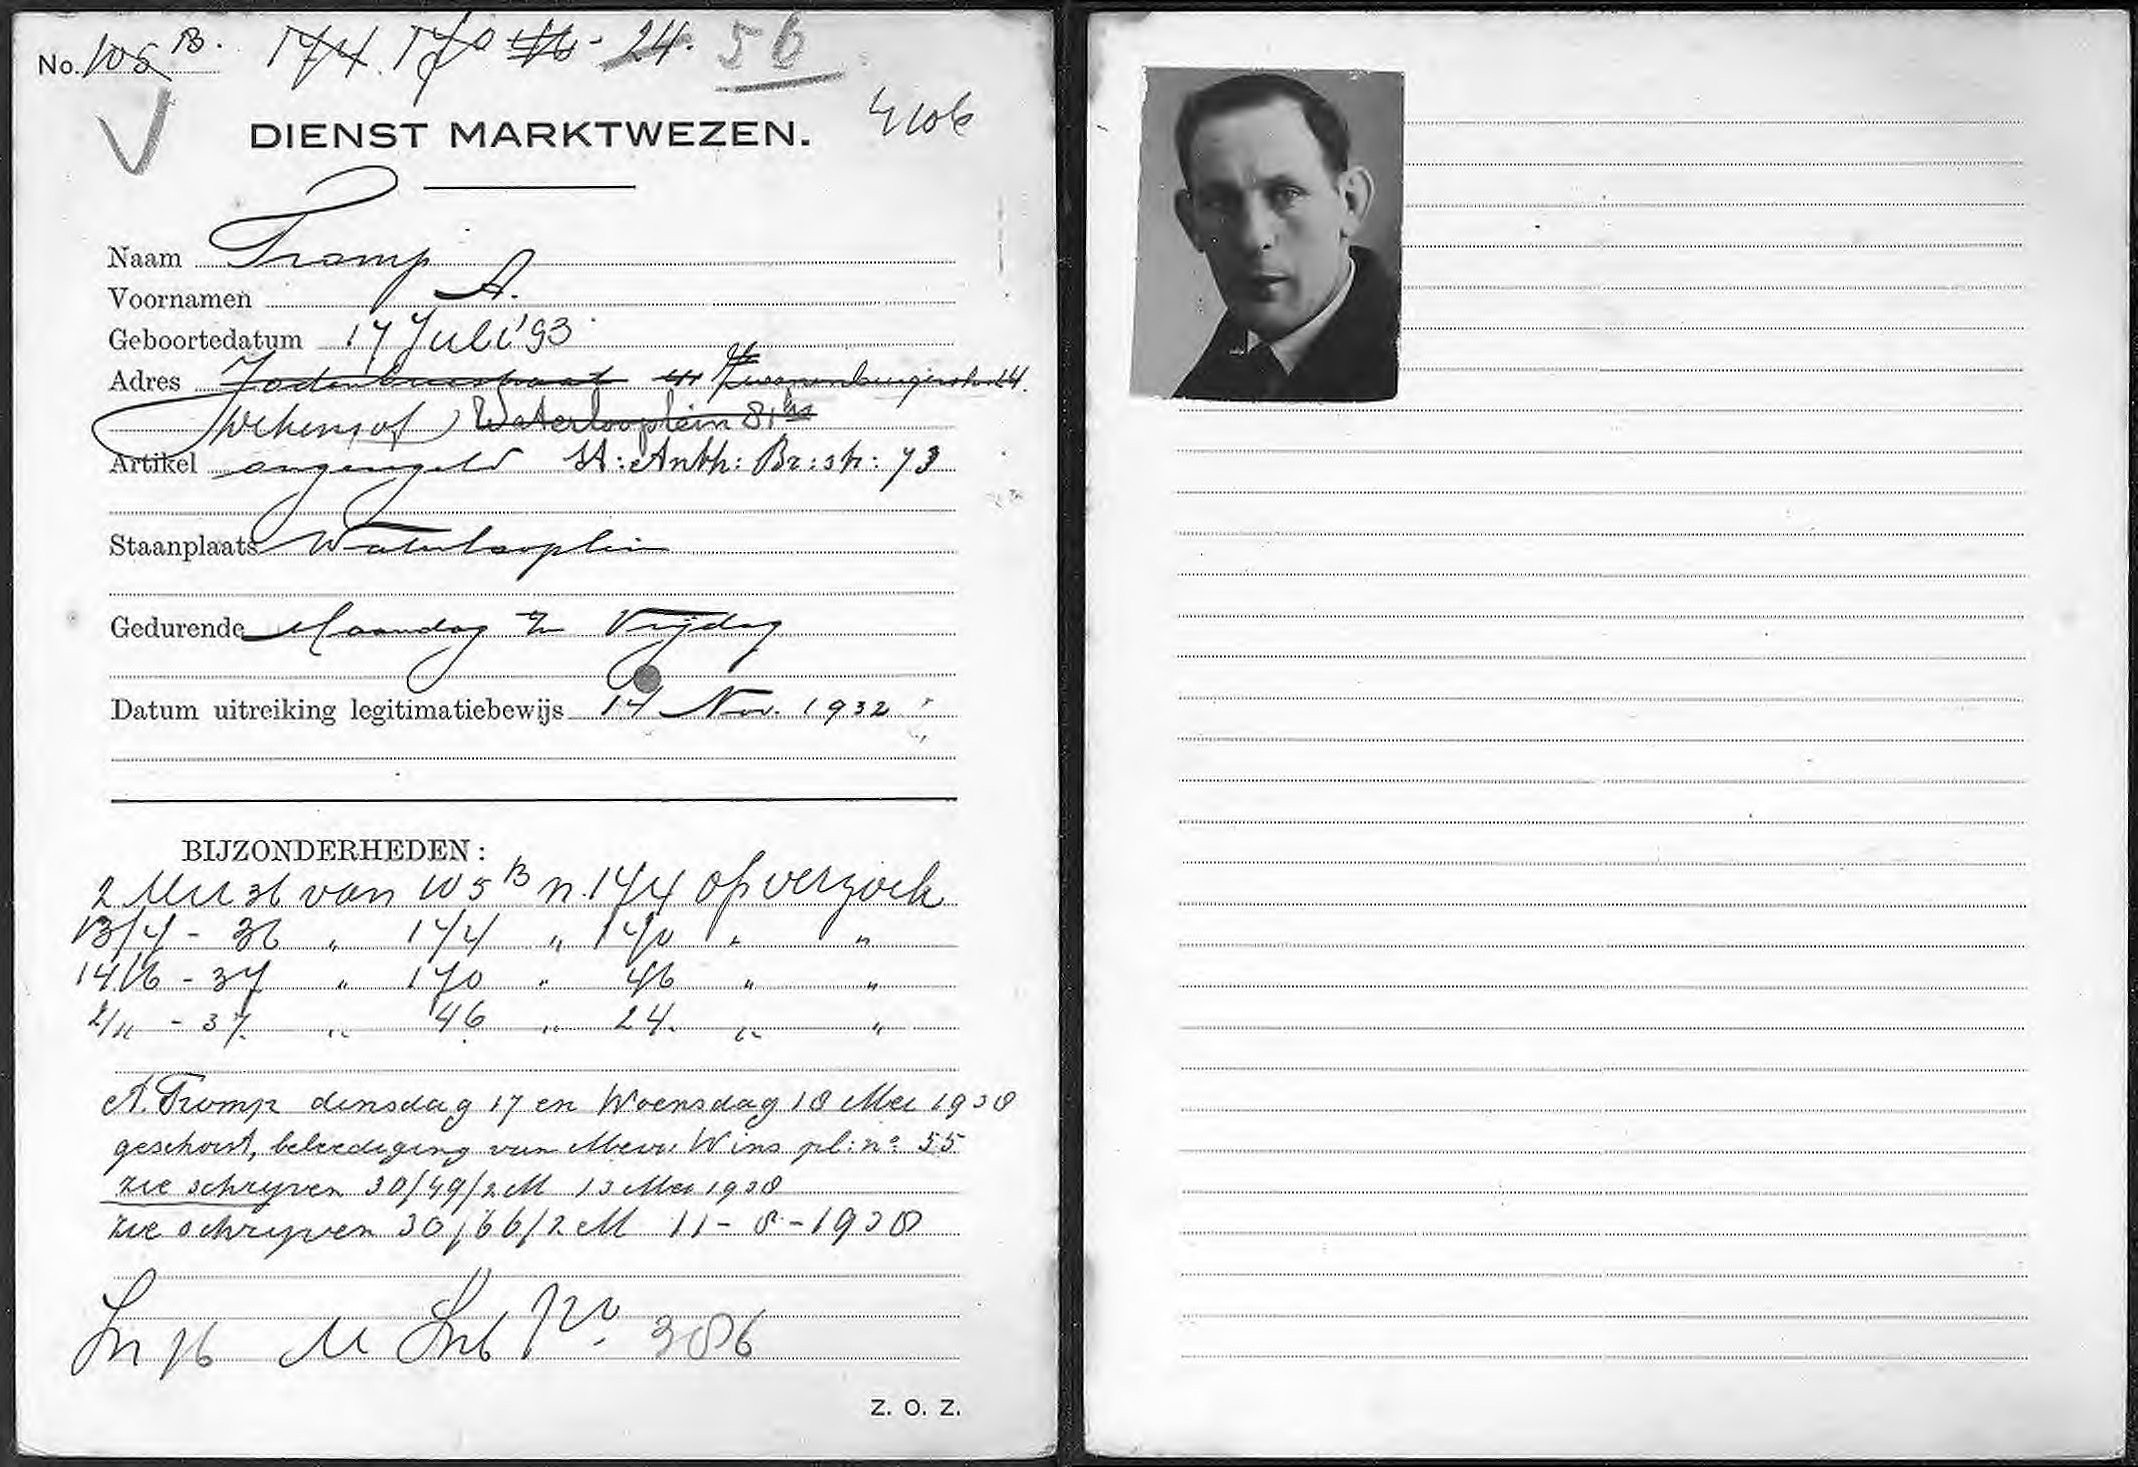 No. 105 B. 174. 170 46 - 24. 56
4106
DIENST MARKTWEZEN.
Naam Tromp
Voornamen A.
Geboortedatum 17 Juli '93
Adres Jodenbreestraat Zwanenburgerstr 24.
Waterlooplein 81 hs
Artikel ongeregeld St: Anth: Br: str: 73
Staanplaats Waterlooplein
Gedurende Maandag t/m Vrijdag
Datum uitreiking legitimatiebewijs 14 Nov. 1932
BIJZONDERHEDEN:
2 Mrt 36 van 105 B n. 174 op verzoek
13/4 - 36 " 174 " 170 " "
14/6 - 37 " 170 " 46 " "
2/11 - 37 " 46 " 24. " "
A. Tromp dinsdag 17 en Woensdag 18 Mei 1938
geschorst, beleediging van Mevr. Wins pl: no 55
zie schrijven 30/49/2 M 13 Mei 1938
zie schrijven 30/66/2 M 11-8-1938
386
Z. O. Z.